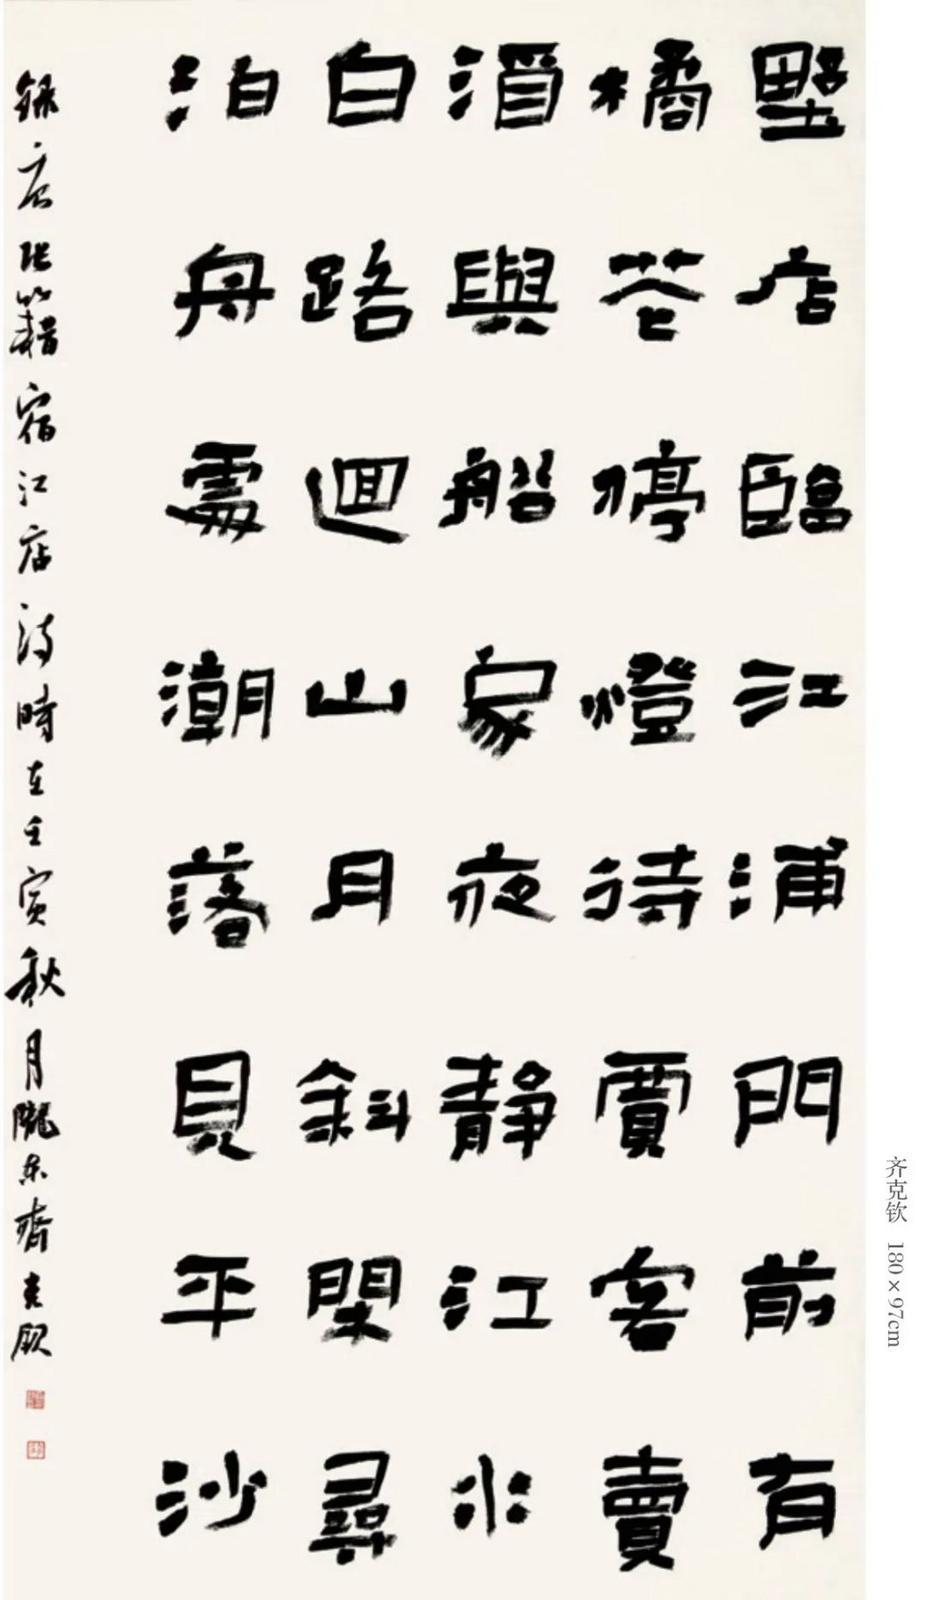 野店臨江浦門前有
橘花停燈待賈客賣
酒與船家夜靜江水
白路迴山月斜閑尋
泊舟處潮落見平沙
錄唐張籍宿江店詩時在壬寅秋月隴東齊克欽
齐克钦 180×97cm